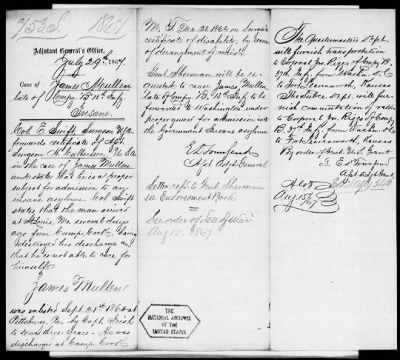 1867
Adjutant General's Office,
July 29th, 1867.
Case of James Mullen
late of Comp. B, 12" Infy
Insane.
Col. E. Swift, Surgeon U.S.A.
forwards certificate of Asst.
Surgeon
in the case of James Mullen
and states that he is a proper
subject for admission to any
insane asylum. Col. Swift
states that the man arrived
at St. Louis, Mo. several days
ago from Camp Cook, having
his discharge and
that he is not able to care for
himself.
James Mullen
was enlisted Sept. 21st 1864 at
Pittsburg, Pa., by Capt.
to serve three years. He was
discharged at Camp Cook
M. T. 1866 on Surgeon's
certificate of disability, by reason
of derangement of mind.
Genl. Sherman will be re-
quested to cause James Mullen,
late of Comp. B, 12" Infy. to be
forwarded to Washington under
proper guard for admission into
the Government Insane asylum
E. D. Townsend
Asst. Adjt. General
Letter rec'd to Genl. Sherman
in Endorsement Book
By order of Sec. of War
Aug. 15. 1867.
THE
NATIONAL ARCHIVES
OF THE
UNITED STATES
The Quartermaster's Dept.
will furnish transportation
to Corporal Jno. Riggs of Comp.
B, 37th Infy. from Washn. D.C.
to Fort Leavenworth, Kansas
Subsistence Dept. will furnish
commutation of rations
to Corporal Jno. Riggs of Comp
B, 37th Infy. from Washn. D.C.
to Fort Leavenworth, Kansas
By order of Genl. Grant
E. D. Townsend
Asst. Adjt. Genl.
A.G.O.
Aug. 15
1867